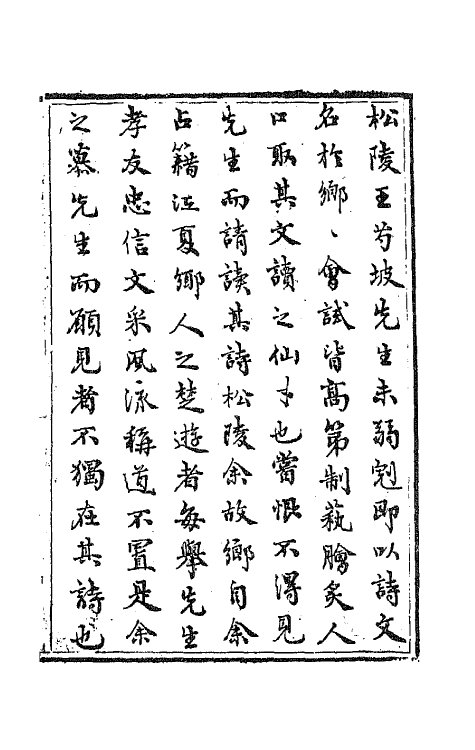 松陵王芍坡先生未弱冠即以詩文
名於鄉、會試皆高第制蓺膾炙人
口取其文讀之仙才也嘗恨不得見
先生而請讀其詩松陵余故鄉自余
占籍江夏鄉人之楚遊者每舉先生
孝友忠信文采風流稱道不置是余
之慕先生而願見者不獨在其詩也